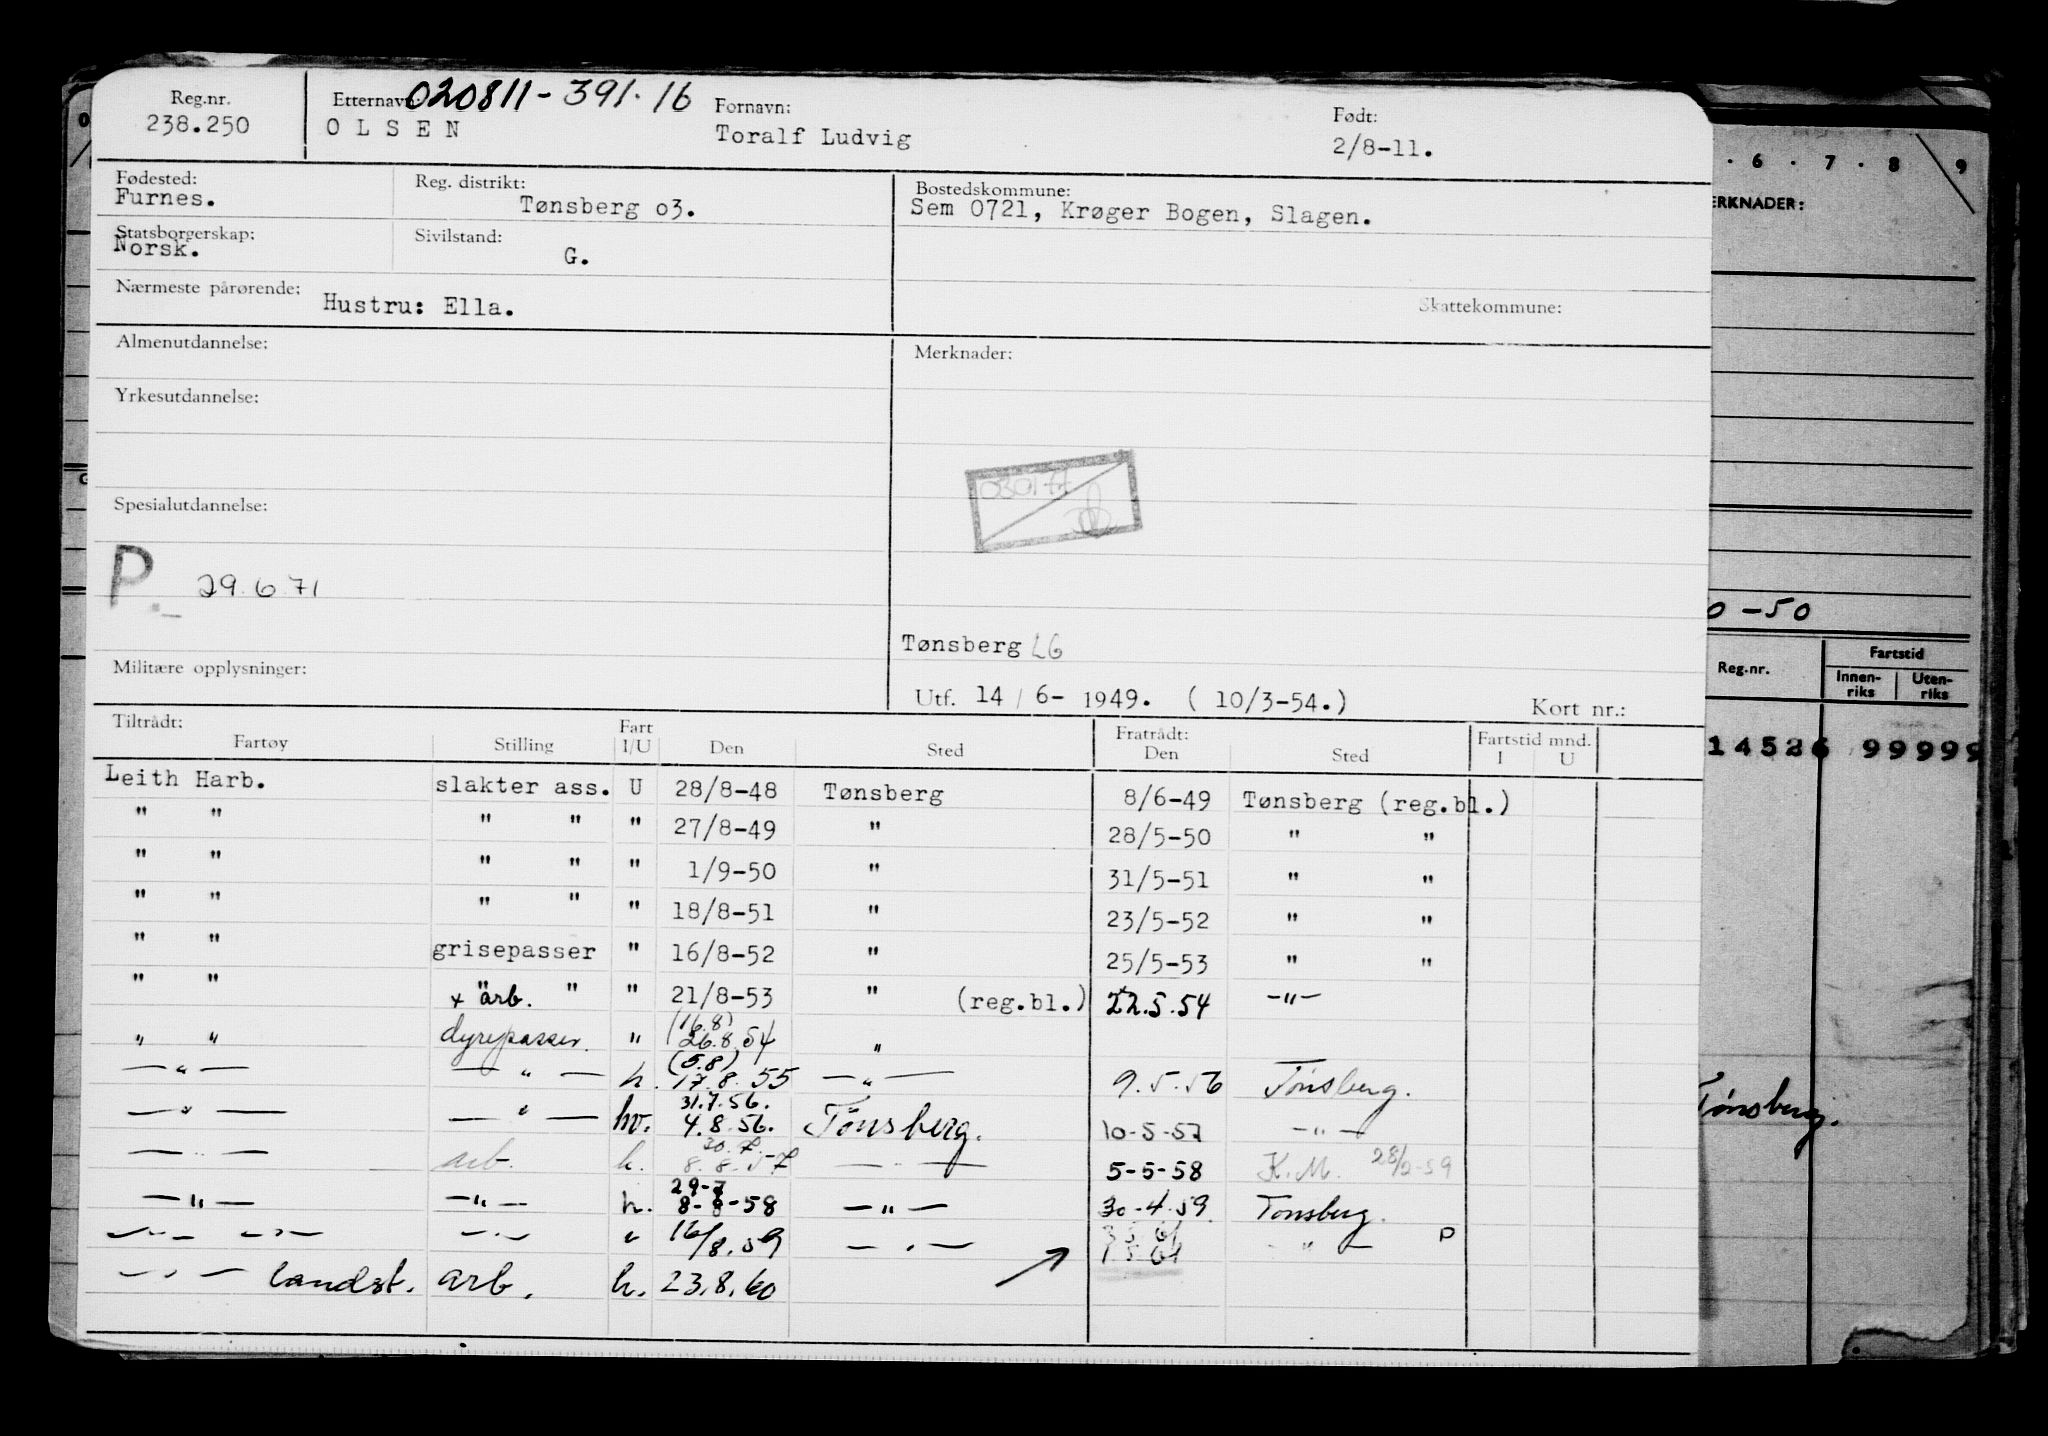 020811-391.16
Reg.nr. Etternavn: Fornavn: Født:
238.250 OLSEN Toralf Ludvig 2/8-11.
Fødested: Reg. distrikt: Bostedskommune:
Furnes. Tønsberg o3. Sem 0721, Krøger Bogen, Slagen.
Statsborgerskap: Sivilstand:
Norsk. G.
Nærmeste pårørende: Hustru: Ella. Skattekommune:
Almenutdannelse: Merknader:
Yrkesutdannelse:
030177
Spesialutdannelse:
P 29.6.71
Tønsberg LG
Militære opplysninger:
Utf. 14 / 6- 1949. ( 10/3-54.) Kort nr.:
Tiltrådt: Fratrådt: Fartstid mnd.
Fartøy Stilling Fart I/U Den Sted Den Sted I U
Leith Harb. slakter ass. U 28/8-48 Tønsberg 8/6-49 Tønsberg (reg.bl.)
" " " " " 27/8-49 " 28/5-50 " "
" " " " " 1/9-50 " 31/5-51 " "
" " " " " 18/8-51 " 23/5-52 " "
" " grisepasser " 16/8-52 " 25/5-53 " "
" " x "arb. " " 21/8-53 " (reg.bl.) 22.5.54 -"-
(16.8)
" " dyrepasser. " 26.8.54 "
(5.8)
-"- -"- h. 17.8.55 -"- 9.5.56 Tønsberg.
31.7.56.
-"- -"- hv. 4.8.56. Tönsberg. 10-5-57 -"-
30.7.
-"- arb. h. 8.8.57 -"- 5-5-58 K.M. 28/2-59
29-7
-"- -"- h. 8-8-58 -"- 30-4.59. Tønsberg.
-"- -"- -"- " 16/8.59 -"- -"- P
-"- landst. arb. h. 23.8.60
. 6 . 7 . 8 9
ERKNADER:
0-50
Reg.nr. Fartstid
Innen-riks Uten-riks
14526 99999
Tønsberg.